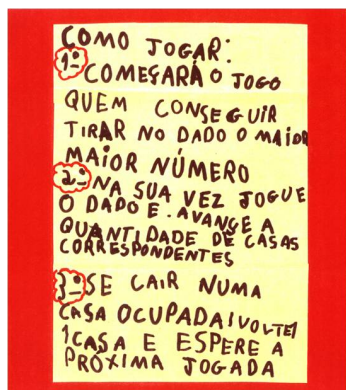 COMO JOGAR:
1º COMEÇARÁ O JOGO
QUEM CONSEGUIR
TIRAR NO DADO O MAIOR
MAIOR NÚMERO
2º NA SUA VEZ JOGUE
O DADO E. AVANÇE A
QUANTIDADE DE CASAS
CORRESPONDENTES
3º SE CAIR NUMA
CASA OCUPADA, VOLTE
1 CASA E ESPERE A
PRÓXIMA JOGADA